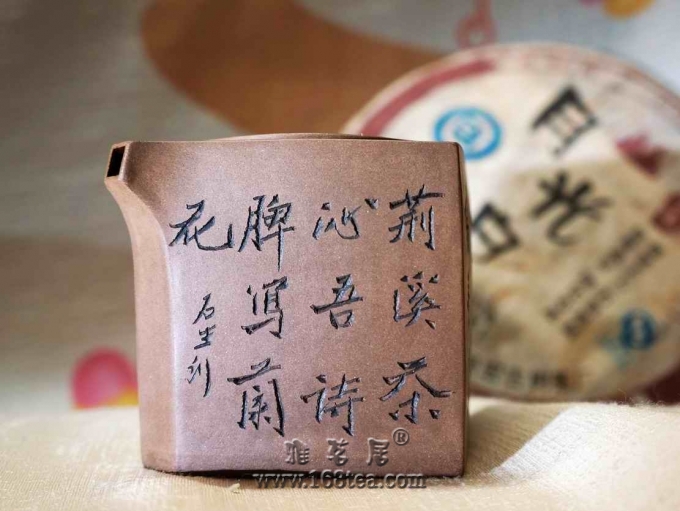 荆溪茶
沁吾诗
脾写蘭
花
石生刻
月光
白
雅茗居®
www.168tea.com